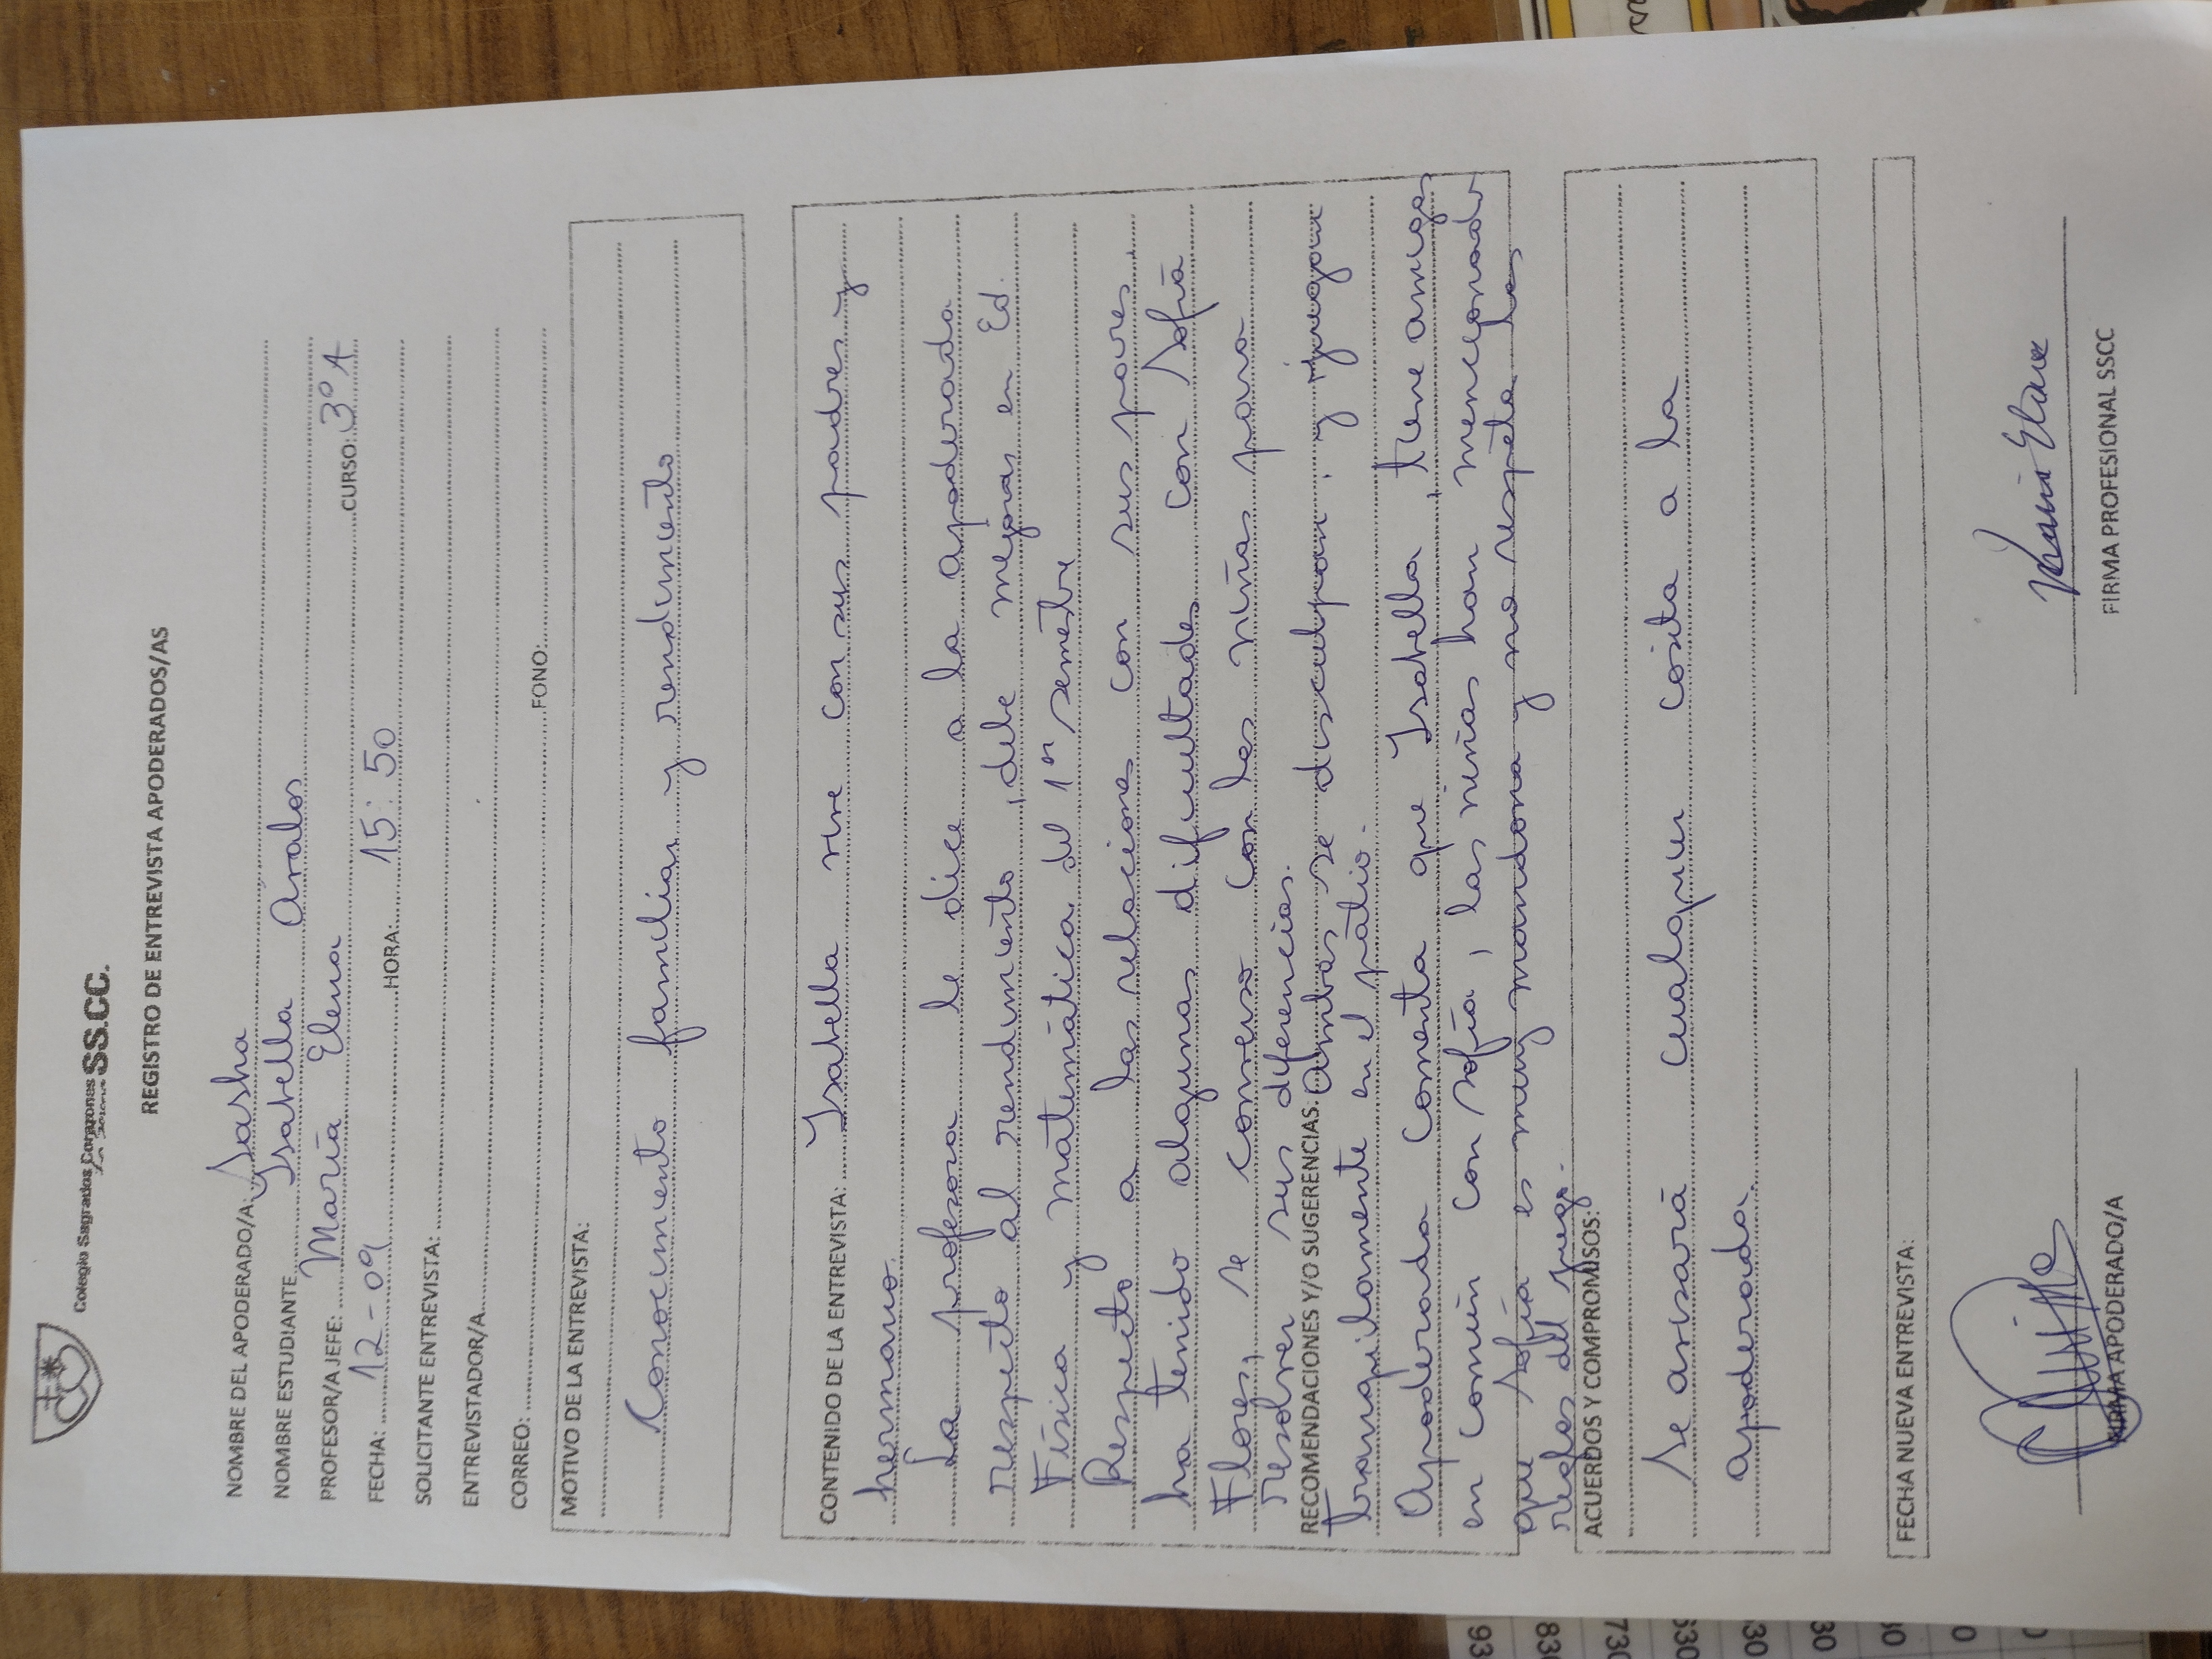 Colegio Sagrados Corazones SS.CC.
REGISTRO DE ENTREVISTA APODERADOS/AS
NOMBRE DEL APODERADO/A: Sasha
NOMBRE ESTUDIANTE Isabella Arados
PROFESOR/A JEFE: María Elena CURSO: 3° A
FECHA: 12-09 HORA: 15:50
SOLICITANTE ENTREVISTA:
ENTREVISTADOR/A
CORREO: FONO:
MOTIVO DE LA ENTREVISTA:
Conocimiento familiar y rendimiento
CONTENIDO DE LA ENTREVISTA: Isabella vive con sus padres y
hermano.
La profesora le dice a la apoderada
respecto al rendimiento, debe mejorar en Ed.
Física y matemática del 1er semestre
Respecto a las relaciones con sus pares,
ha tenido algunas dificultades con Sofía
Flores, se converso con las niñas para
resolver sus diferencias.
RECOMENDACIONES Y/O SUGERENCIAS: Ambas se disculpan, y juegan
tranquilamente en el patio.
Apoderada comenta que Isabella, tiene amigas
en común con Sofía, las niñas han mencionado
que Sofía es muy mandona y no respeta las
reglas del juego.
ACUERDOS Y COMPROMISOS:
Se avisará cualquier cosita a la
apoderada.
FECHA NUEVA ENTREVISTA:
María Elena
FIRMA APODERADO/A FIRMA PROFESIONAL SSCC
93
830
730
630